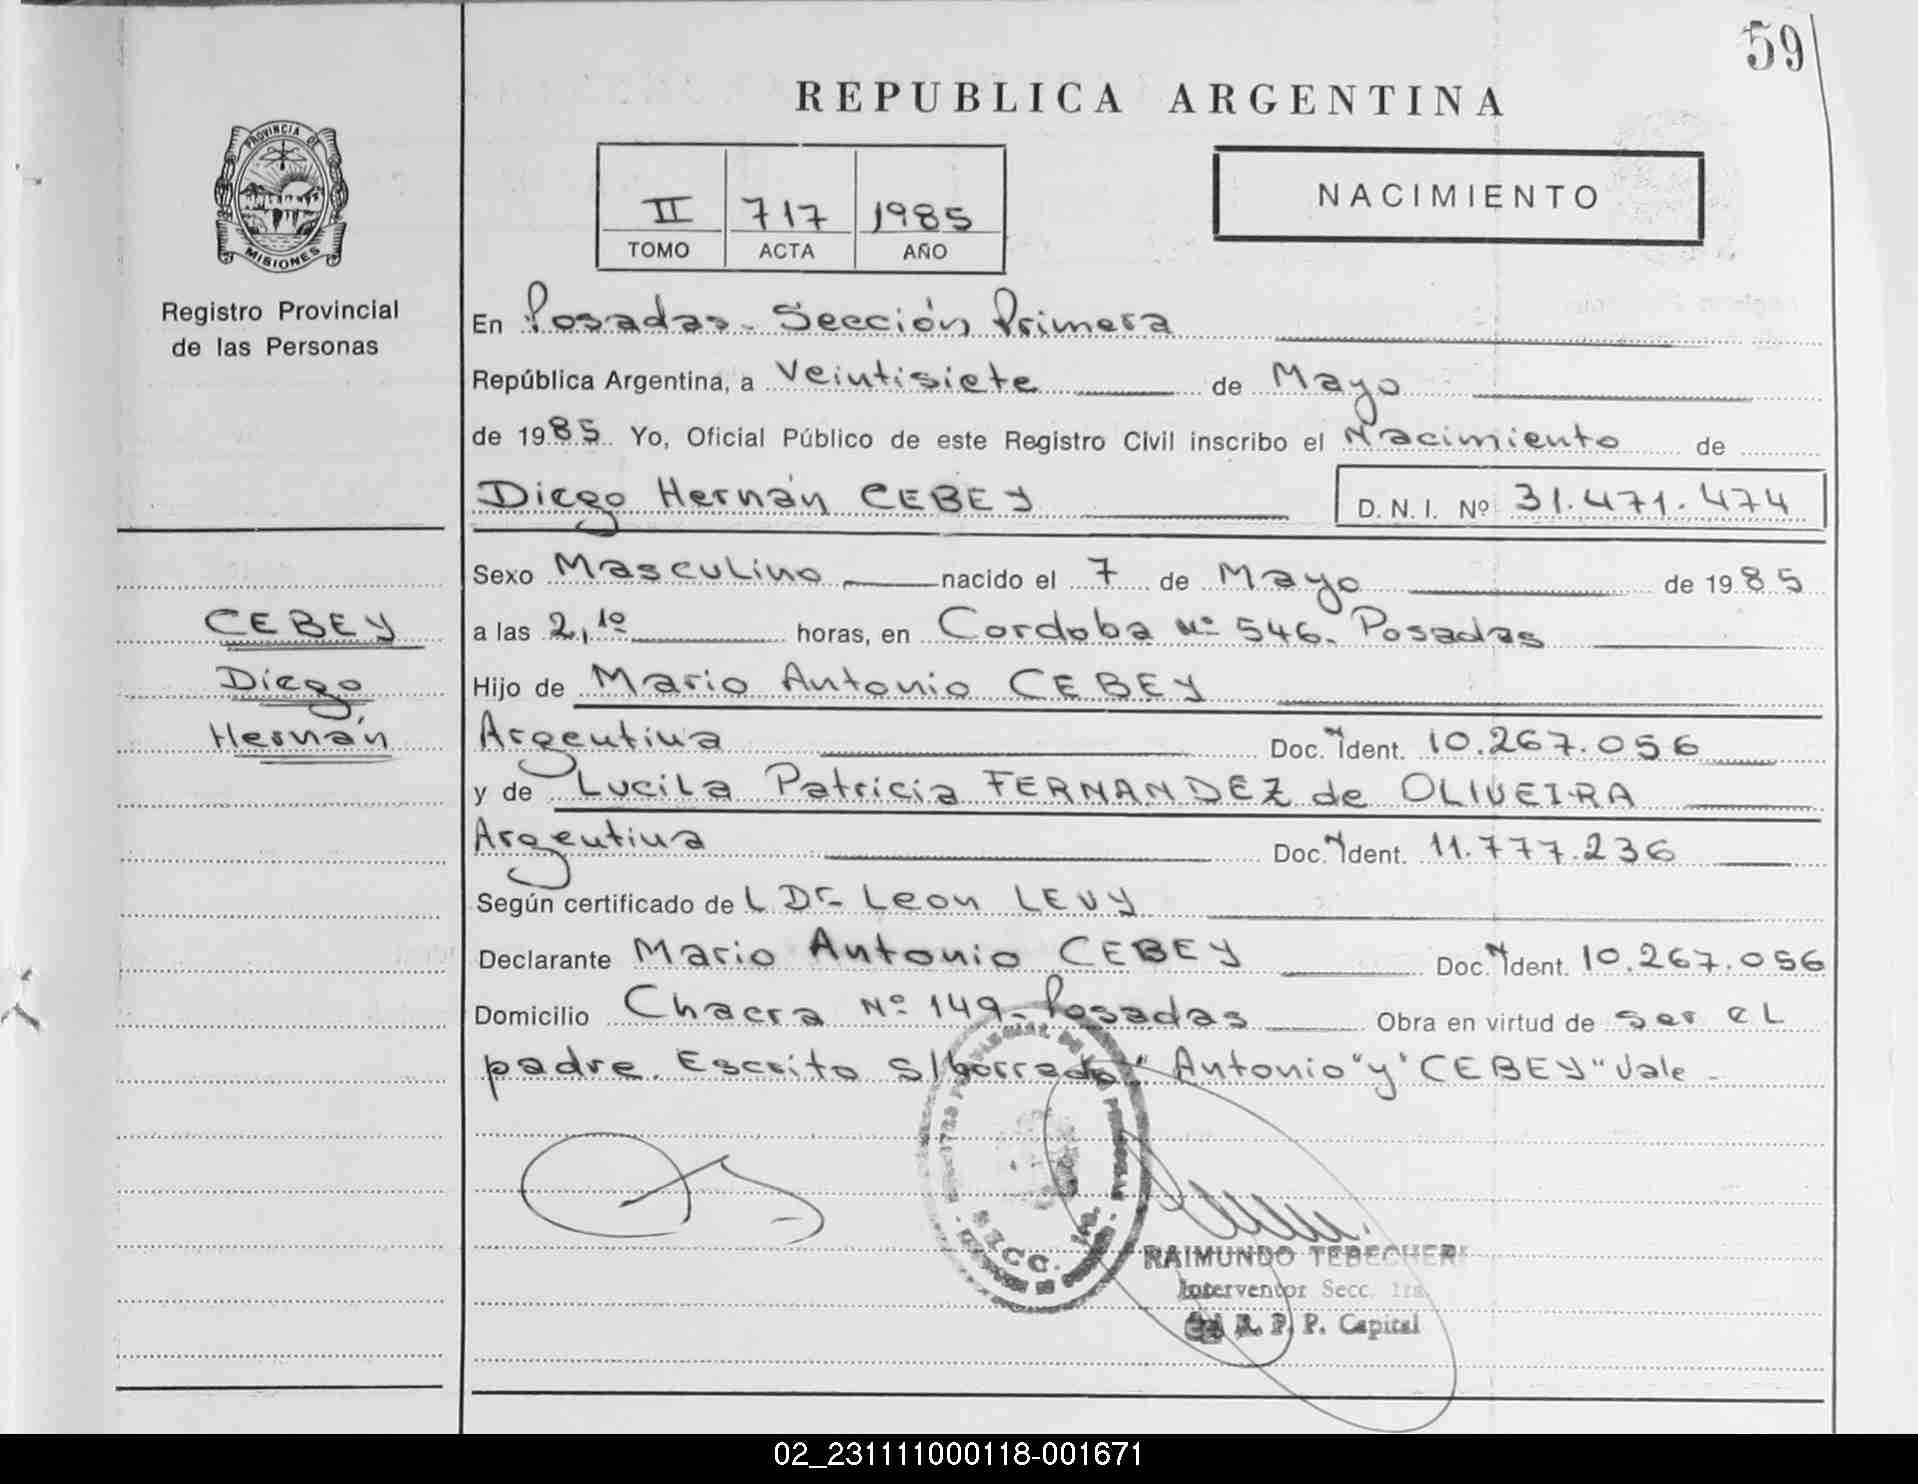 59
REPUBLICA ARGENTINA
PROVINCIA DE
MISIONES
II 717 1985
TOMO ACTA AÑO
NACIMIENTO
Registro Provincial
de las Personas
En Posadas - Sección Primera
República Argentina, a Veintisiete de Mayo
de 1985 Yo, Oficial Público de este Registro Civil inscribo el Nacimiento de
Diego Hernán CEBEY D. N. I. Nº 31.471.474
Sexo Masculino nacido el 7 de Mayo de 1985
CEBEY
Diego
Hernán
a las 2,10 horas, en Cordoba Nº 546. Posadas
Hijo de Mario Antonio CEBEY
Argentina Doc. Ident. 10.267.056
y de Lucila Patricia FERNANDEZ de OLIVEIRA
Argentina Doc. Ident. 11.777.236
Según certificado de L Dr. Leon LEVY
Declarante Mario Antonio CEBEY Doc. Ident. 10.267.056
Domicilio Chacra Nº 149 - Posadas Obra en virtud de ser el
padre. Escrito s/borrado "Antonio" y "CEBEY" Vale -
SECC. 1ra.
RAIMUNDO TEBECHERI
Interventor Secc. 1ra.
R. P. P. Capital
02_231111000118-001671